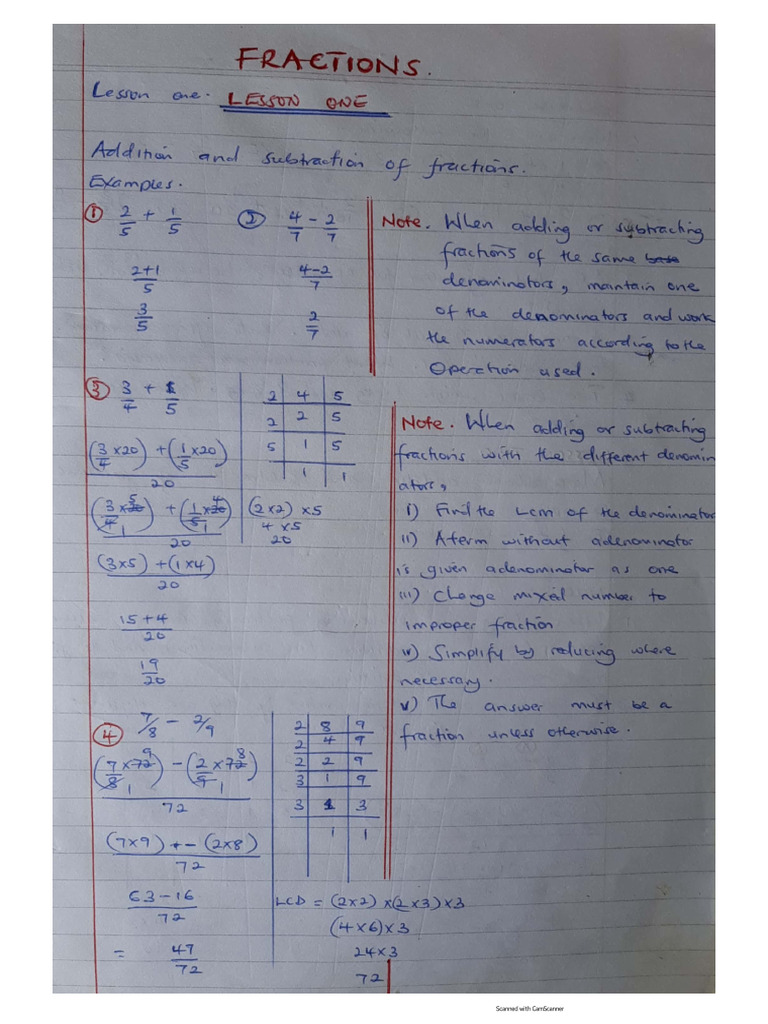 FRACTIONS.
Lesson one. LESSON ONE
Addition and subtraction of fractions.
Examples.
① 2/5 + 1/5
2+1/5
3/5
② 4/7 - 2/7
4-2/7
2/7
Note. When adding or subtracting
fractions of the same
denominators, maintain one
of the denominators and work
the numerators according to the
Operation used.
③ 3/4 + 1/5
(3/4 ×20) + (1/5 ×20)
20
(3/4 ×20) 5 1 + (1/5 ×20) 4 1
20
(3×5) + (1×4)
20
15+4
20
19
20
2 4 5
2 2 5
5 1 5
1 1
(2×2) ×5
4 ×5
20
Note. When adding or subtracting
fractions with the different denomin
ators,
i) Find the Lcm of the denominator
ii) A term without adenominator
is given adenominator as one
iii) Change mixed number to
improper fraction
iv) Simplify by reducing where
necessary.
v) The answer must be a
fraction unless otherwise.
④ 7/8 - 2/9
(7/8 ×72) 9 1 - (2/9 ×72) 8 1
72
(7×9) - (2×8)
72
63-16
72
= 47
72
2 8 9
2 4 9
2 2 9
3 1 9
3 1 3
1 1
LCD = (2×2) ×(2×3)×3
(4×6)×3
24×3
72
Scanned with CamScanner